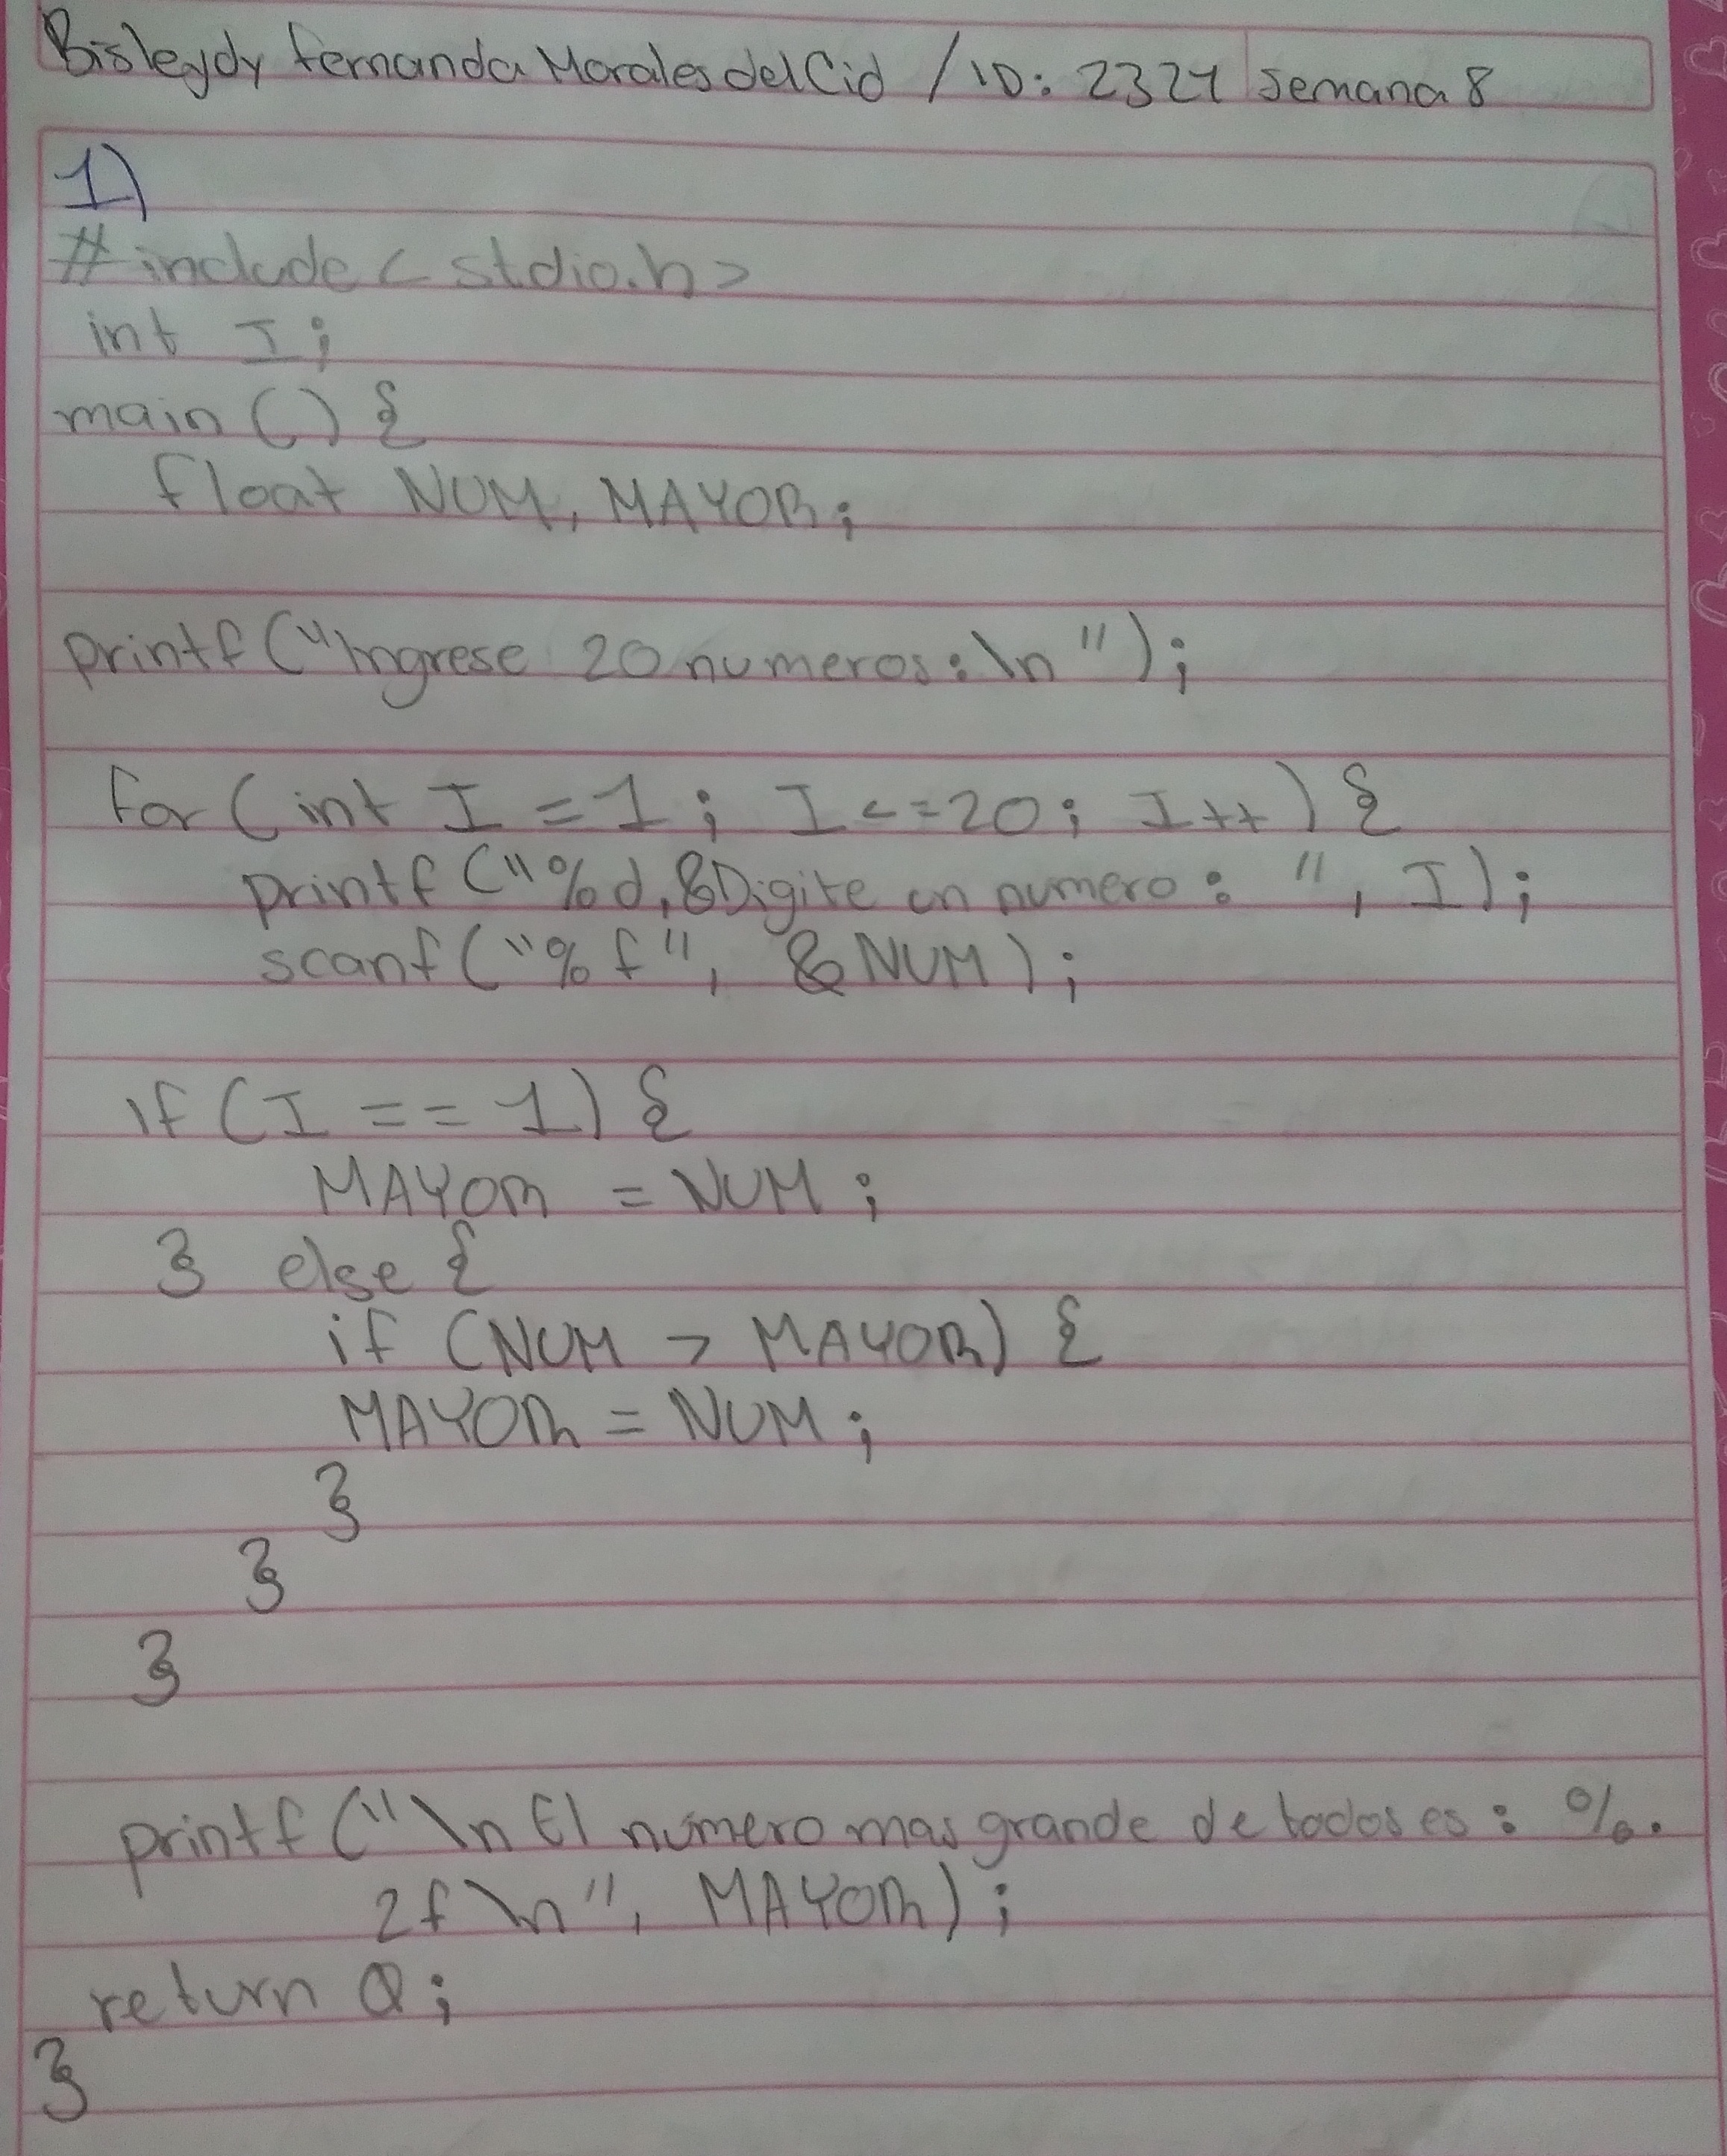 Bisleydy Fernanda Morales del Cid / ID: 2321 semana 8
1)
#include < stdio.h>
int I;
main () {
float NUM, MAYOR;
printf ("Ingrese 20 numeros: \n ");
for (int I = 1 ; I <= =20; I++) {
printf ("%d, &Digite un numero: ", I);
scanf ("%f", &NUM);
if (I == 1) {
MAYOR = NUM;
} else {
if (NUM > MAYOR) {
MAYOR = NUM;
}
}
}
printf ("\n El numero mas grande de todos es: %.
2f \n", MAYOR);
return 0;
}